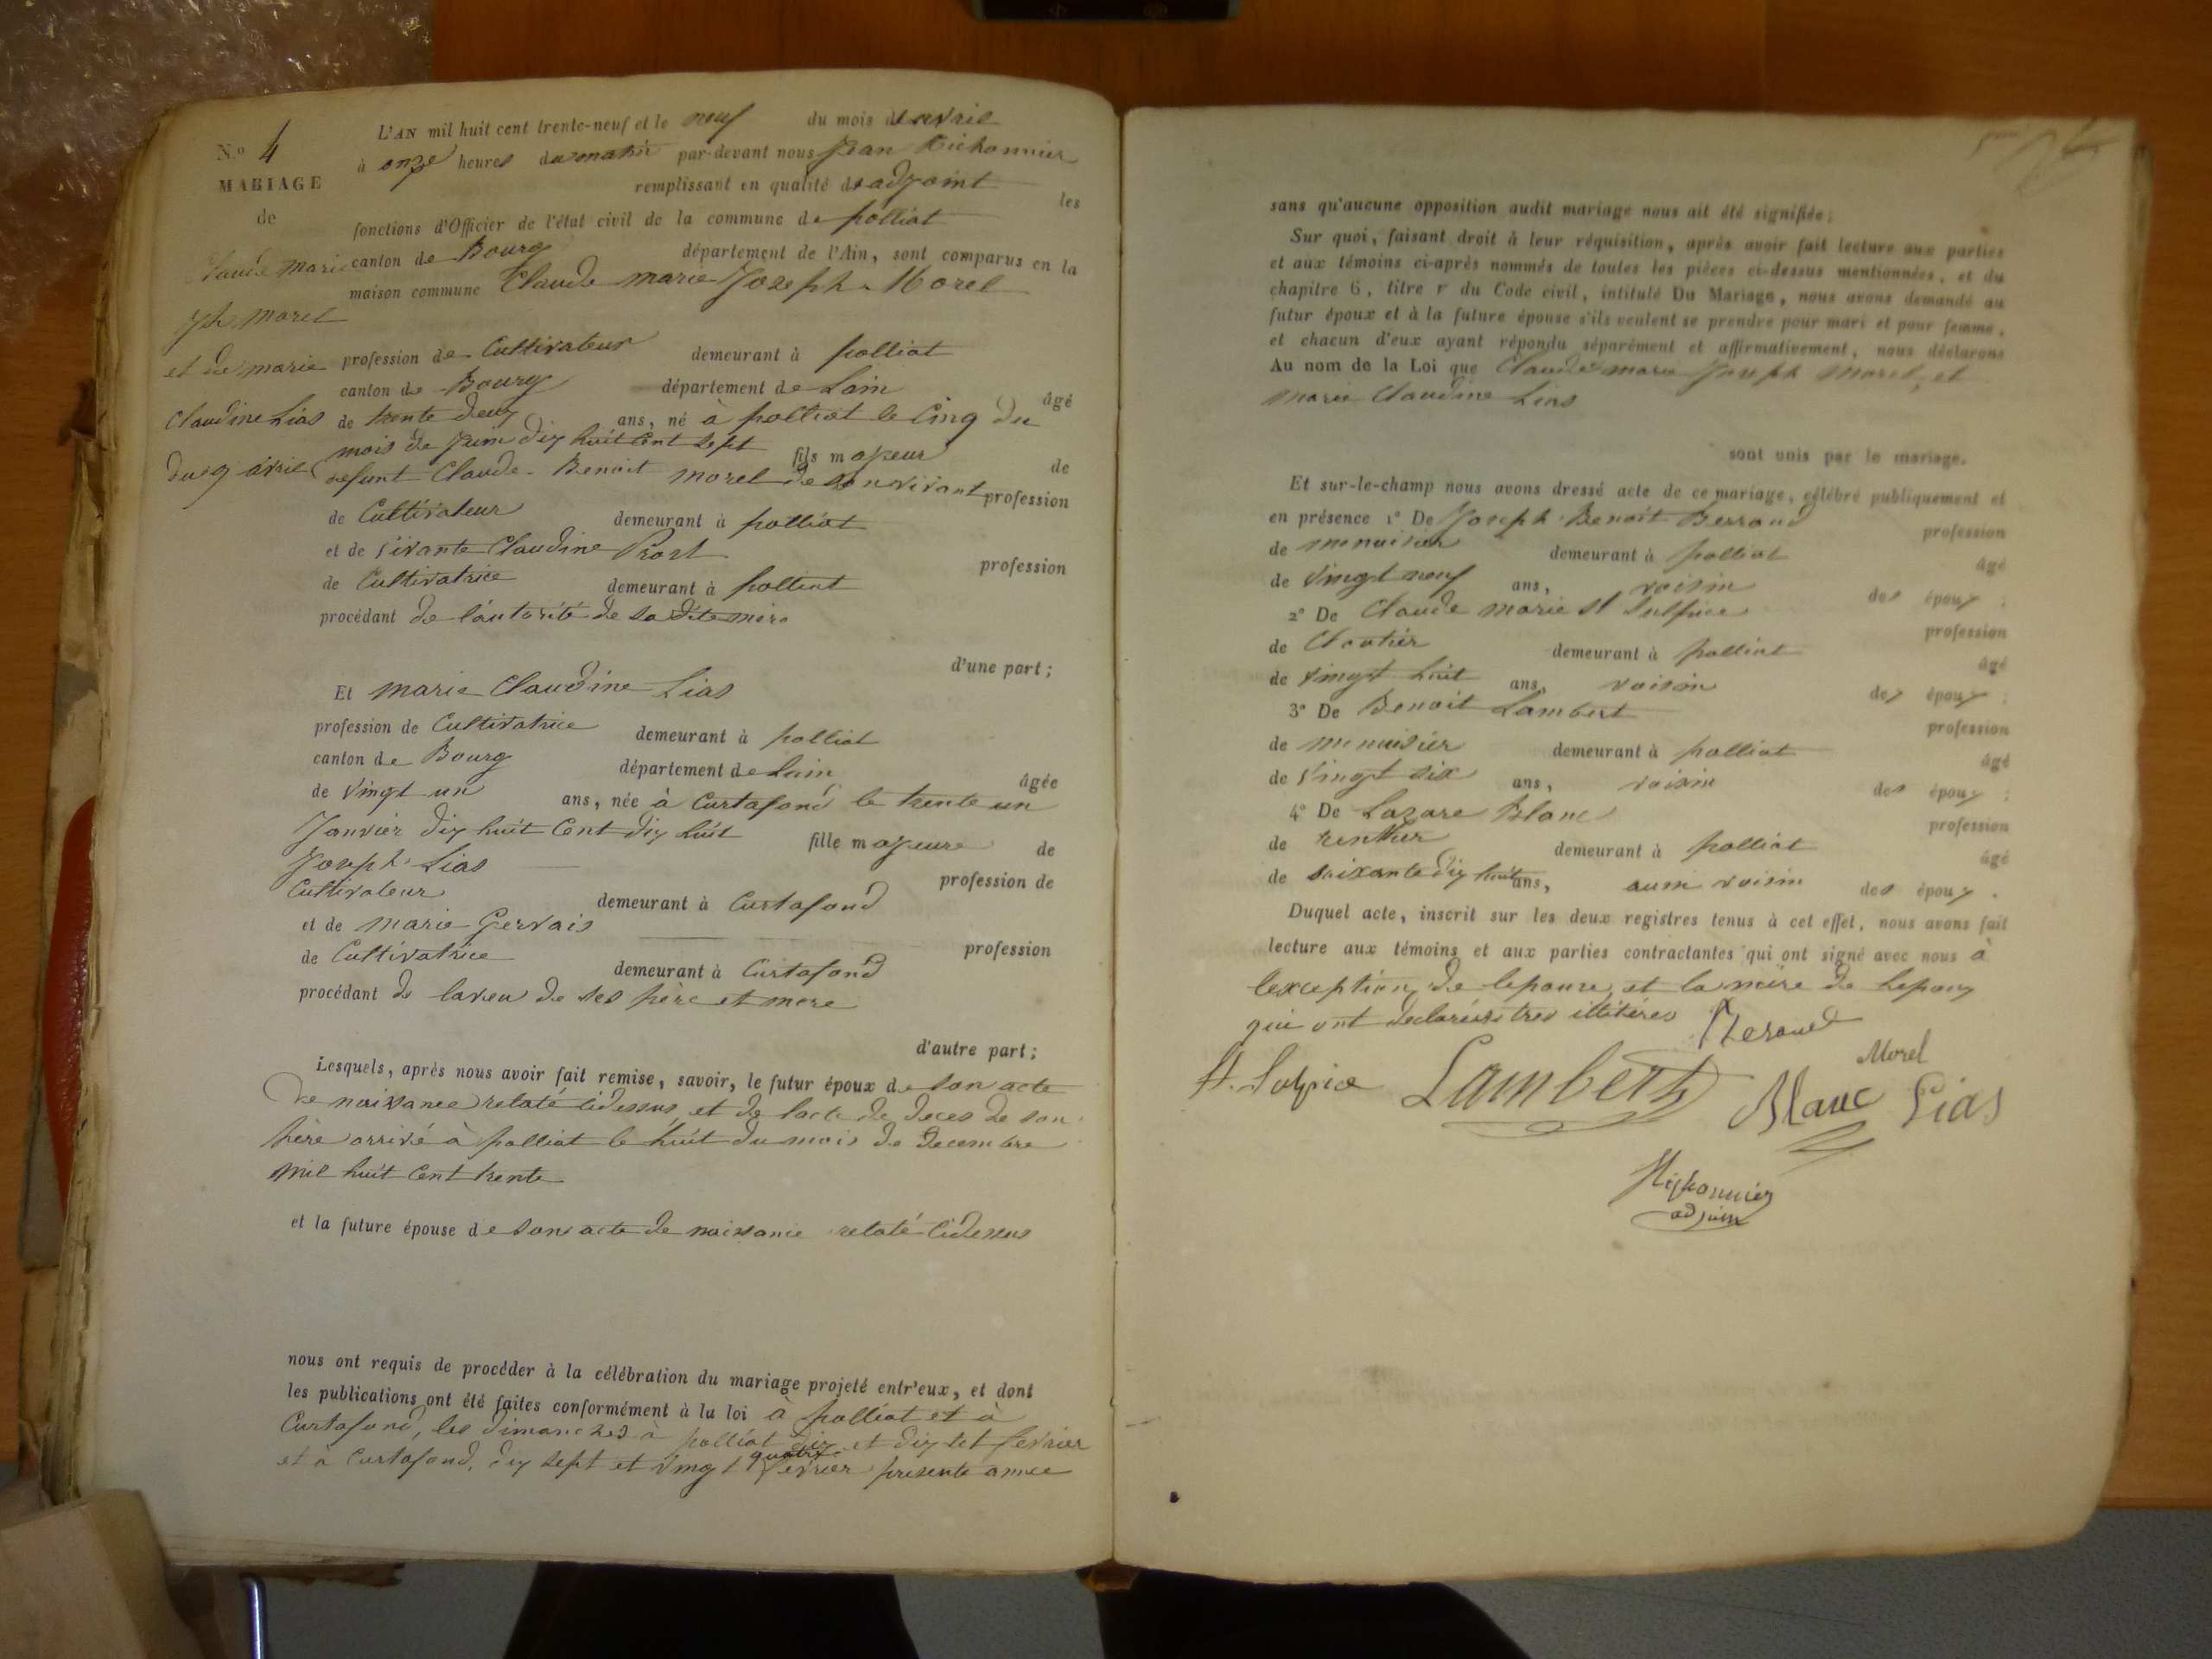 N.º 4
MARIAGE
de
Claude marie
Jph morel
et de marie
Claudine Lias
du 9 avril
L'AN mil huit cent trente-neuf et le neuf du mois d'avril
à onze heures du matin par-devant nous Jean
remplissant en qualité de adjoint les
fonctions d'Officier de l'état civil de la commune de polliat
canton de Bourg département de l'Ain, sont comparus en la
maison commune Claude marie Joseph Morel
profession de Cultivateur demeurant à polliat
canton de Bourg département de Lain âgé
de trente deux ans, né à polliat le Cinq du
mois de juin dix huit Cent sept fils majeur de
defunt Claude-Benoit morel de son vivant profession
de Cultivateur demeurant à polliat
et de vivante Claudine Prost profession
de Cultivatrice demeurant à polliat
procédant de l'autorité de sa dite mère
d'une part;
Et marie Claudine Lias
profession de Cultivatrice demeurant à polliat
canton de Bourg département de Lain âgée
de vingt un ans, née à Curtafond le trente un
Janvier dix huit Cent dix huit fille majeure de
Joseph Lias profession de
Cultivateur demeurant à Curtafond
et de marie Gervais profession
de Cultivatrice demeurant à Curtafond
procédant de laveu de ses père et mere
d'autre part;
Lesquels, après nous avoir fait remise, savoir, le futur époux de son acte
de naissance relaté cidessus et de lacte de deces de son
père arrivé à polliat le huit du mois de decembre
mil huit Cent trente
et la future épouse de son acte de naissance relaté cidessus
nous ont requis de procéder à la célébration du mariage projeté entr'eux, et dont
les publications ont été faites conformément à la loi à polliat et à
Curtafond, les dimanches à polliat dix et dix set fevrier
et à Curtafond, dix sept et vingt quatre fevrier presente annee
sans qu'aucune opposition audit mariage nous ait été signifiée;
Sur quoi, faisant droit à leur réquisition, après avoir fait lecture aux parties
et aux témoins ci-après nommés de toutes les pièces ci-dessus mentionnées, et du
chapitre 6, titre v du Code civil, intitulé Du Mariage, nous avons demandé au
futur époux et à la future épouse s'ils veulent se prendre pour mari et pour femme,
et chacun d'eux ayant répondu séparément et affirmativement, nous déclarons
Au nom de la Loi que Claude marie Joseph Morel, et
marie Claudine Lias
sont unis par le mariage.
Et sur-le-champ nous avons dressé acte de ce mariage, célébré publiquement et
en présence 1º De Joseph Benoit profession
de menuisier demeurant à polliat âgé
de vingt neuf ans, voisin des époux;
2º De Claude marie St Sulpice profession
de Cloutier demeurant à polliat âgé
de vingt huit ans, voisin des époux;
3º De Benoit Lambert profession
de menuisier demeurant à polliat âgé
de vingt six ans, voisin des époux;
4º De Lazare Blanc profession
de rentier demeurant à polliat âgé
de soixante dix huit ans, aussi voisin des époux.
Duquel acte, inscrit sur les deux registres tenus à cet effet, nous avons fait
lecture aux témoins et aux parties contractantes qui ont signé avec nous à
lexception de lepouse et la mère de Lepoux
qui ont declarés etres illitérés
Morel
St. Sulpice Lambert Blanc Lias
adjoint